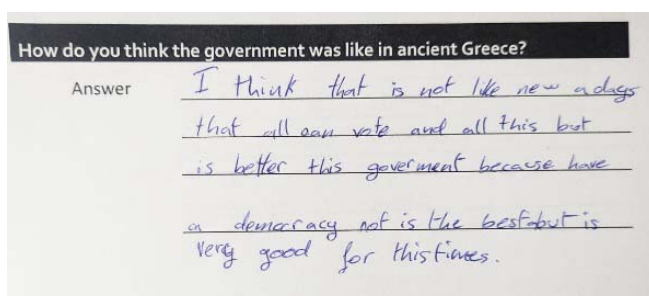 How do you think the government was like in ancient Greece?
Answer
I think that is not like new a days
that all can vote and all this but
is better this goverment because have
an democracy not is the best but is
very good for this times.